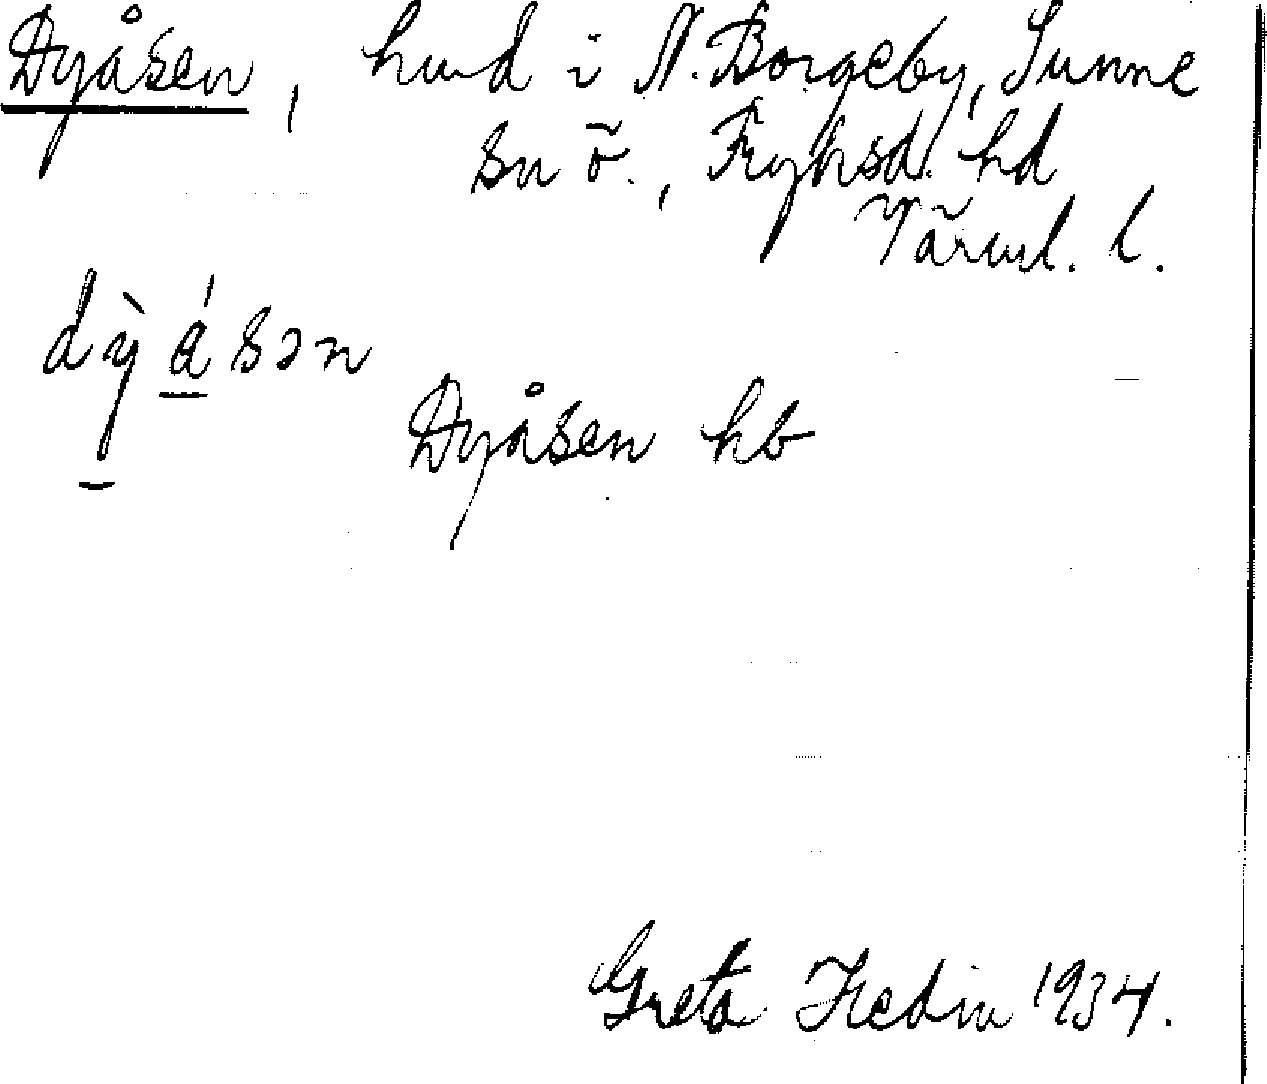 Dyåsen, hmd i N. Borgeby, Sunne
sn ö., Fryksd. hd
Värml. l.
dỳ á sən
Dyåsen hb
Greta Hedin 1934.